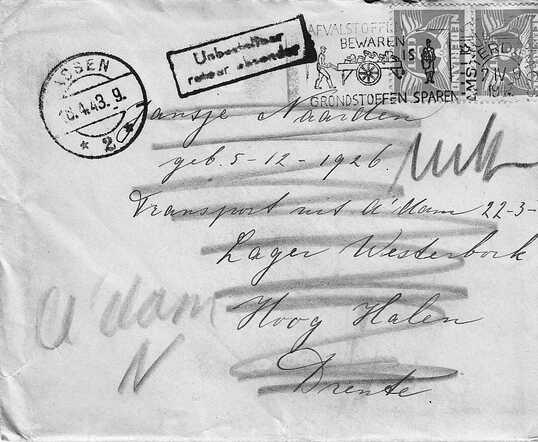 ASSEN
.4.43. 9.
2
Unbestellbar
retour afzender
AFVALSTOFFEN
BEWAREN
IS
GRONDSTOFFEN SPAREN
NEDERLAND
Jansje Naarden
geb. 5-12-1926.
Transport uit A'dam 22-3-
Lager Westerbork
Hoog Halen
Drente.
A'dam
N